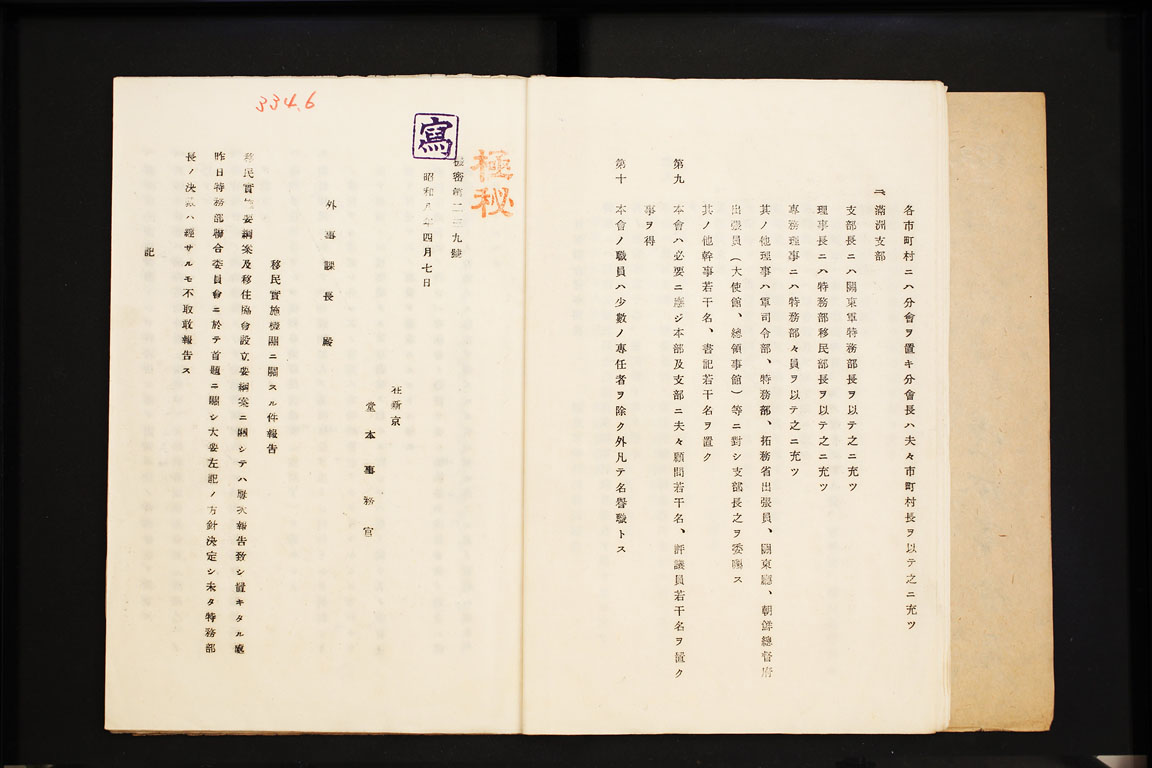 各市町村ニハ分會ヲ置キ分會長ハ夫々市町村長ヲ以テ之ニ充ツ
二、滿洲支部
支部長ニハ關東軍特務部長ヲ以テ之ニ充ツ
理事長ニハ特務部移民部長ヲ以テ之ニ充ツ
專務理事ニハ特務部々員ヲ以テ之ニ充ツ
其ノ他理事ハ軍司令部、特務部、拓務省出張員、關東廳、朝鮮總督府
出張員(大使館、總領事館)等ニ對シ支部長之ヲ委囑ス
其ノ他幹事若干名、書記若干名ヲ置ク
第九 本會ハ必要ニ應ジ本部及支部ニ夫々顧問若干名、評議員若干名ヲ置ク
事ヲ得
第十 本會ノ職員ハ少數ノ專任者ヲ除ク外凡テ名譽職トス
極秘
寫
密第二三九號
昭和八年四月七日
在新京
堂本事務官
外事課長殿
移民實施機關ニ關スル件報告
移民實施要綱案及移住協會設立要綱案ニ關シテハ屢次報告致シ置キタル處
昨日特務部聯合委員會ニ於テ首題ニ關シ大要左記ノ方針決定シ未タ特務部
長ノ決裁ハ經サルモ不取敢報告ス
記
334.6